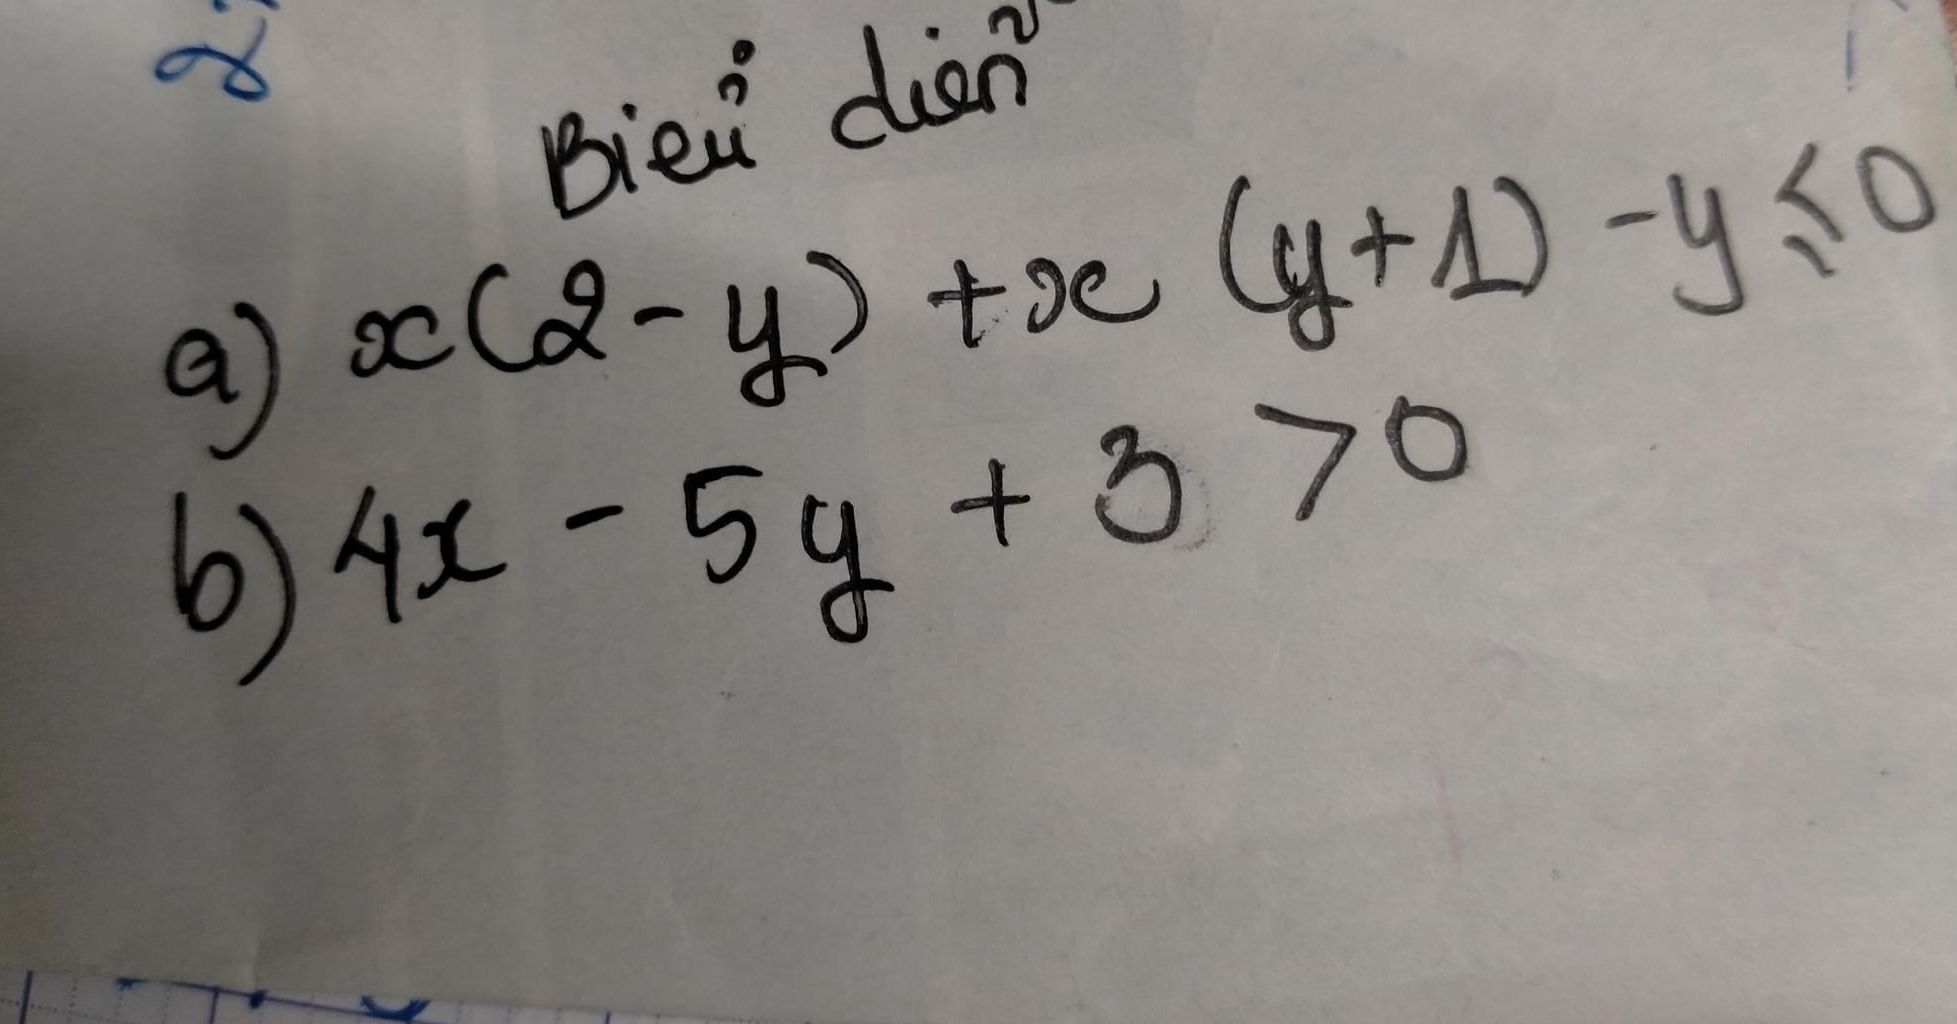 Biểu diễn
a) x(2-y) +x (y+1) -y ≤ 0
b) 4x - 5y + 3 >0